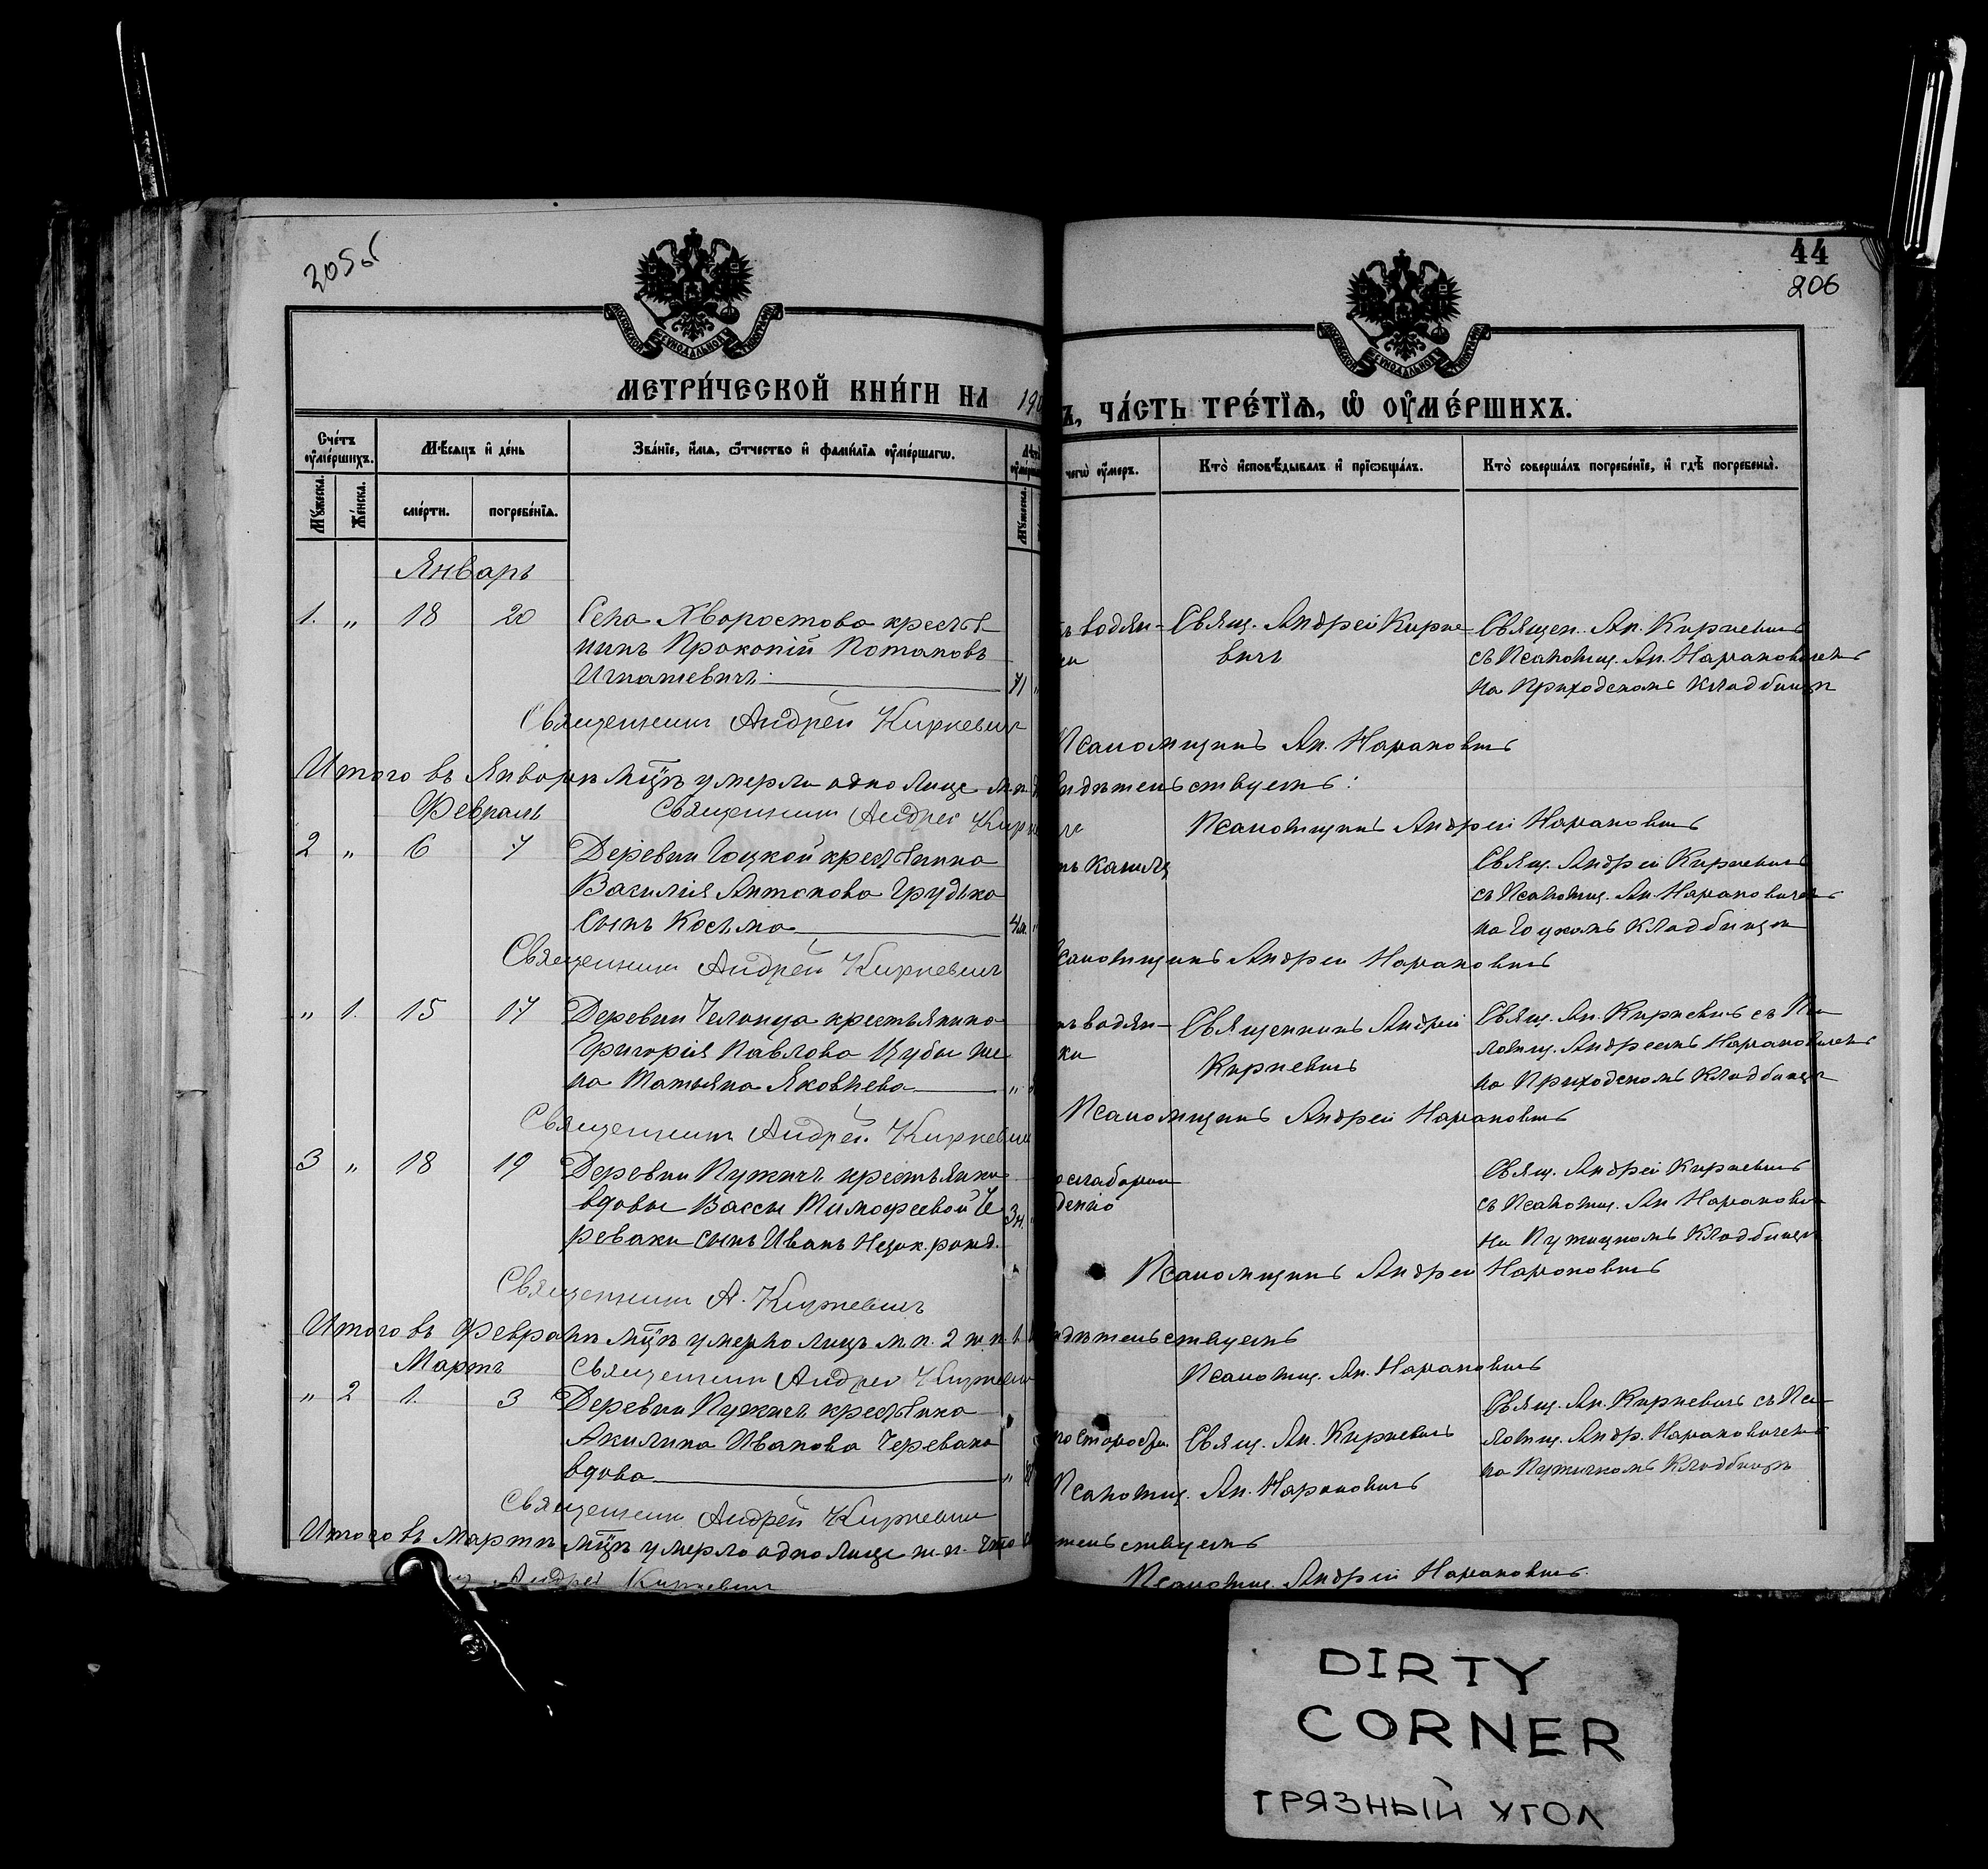 205об
44
206
МЕТРИ́ЧЕСКОЙ КНИ́ГИ НА 190
Ъ, ЧА́СТЬ ТРЕ́ТЇѦ, Ѡ҆ ОУ҆МЕ́РШИХЪ.
МОСКОВСКОЙ СѴНОДАЛЬНОЙ ТИПОГРАФІИ
МОСКОВСКОЙ СѴНОДАЛЬНОЙ ТИПОГРАФІИ
Сче́тъ оу҆ме́ршихъ.
Мѣ́сѧцъ и҆ де́нь
Зва́нїе, и҆́мѧ, ѻ҆́тчество и҆ фами́лїѧ оу҆ме́ршагѡ.
чегѡ̀ оу҆́меръ.
Кто̀ и҆сповѣ́дывалъ и҆ прїѡбща́лъ.
Кто̀ соверша́лъ погребе́нїе, и҆ гдѣ̀ погребены̀.
Мꙋ́жеска.
Же́нска.
сме́рти.
погребе́нїѧ.
Мꙋ́жеска.
Январь
1. „ 18 20 Села Хворостова крестья
нинъ Прокопій Потаповъ
Игнатевичъ 71
водян- Свящ. Андрей Кирке Священ. Ан. Киркевичъ
вичъ съ Псаломщ. Ан. Наранович
на Приходскомъ кладбищѣ
Священникъ Андрей Киркевичъ
Псаломщикъ Ан. Наранович
Итого въ Январѣ мцѣ умерли одно лице м.п.
видѣтельствуемъ:
Февраль Священникъ Андрей Кирк
Псаломщикъ Андрей Наранович
2 „ 6 7 Деревни Гоцкой крестьянина
Василія Антонова Грудька
сынъ Косьма 4м.
кашля Свящ. Андрей Киркевичъ
съ Псаломщ. Ан. Наранович
на Гоцкомъ кладбищѣ
Священникъ Андрей Киркевичъ
саломщикъ Андрей Наранович
„ 1. 15 17 Деревни Челонца крестьянина
Григорія Павлова Цубы же
на Татьяна Яковлева „
водян- Священникъ Андрей Свящ. Ан. Киркевичъ съ Пса
ки Киркевичъ ломщ. Андреемъ Наранович
на Приходскомъ кладбищѣ
Священникъ Андрей Киркевич
Псаломщикъ Андрей Наранович
3 „ 18 19 Деревни Пужичъ крестьянки
вдовы Вассы Тимофеевой Че
реваки сынъ Иванъ Незак. рожд. 3н.
Свящ. Андрей Киркевичъ
съ Псаломщ. Ан Наранович
на Пужицкомъ кладбищѣ
Священникъ А. Киркевичъ
Псаломщикъ Андрей Наранович
Итого въ Февралѣ мцѣ умерло лицъ м.п. 2 ж.п. 1.
идѣтельствуемъ
Мартъ Священникъ Андрей Киркевич
Псаломщ. Ан. Наранович
„ 2 1. 3 Деревни Пужичъ крестьянка
Акилина Иванова Черевака
вдова „
старости. Свящ. Ан. Киркевичъ
Свящ. Ан. Киркевичъ съ Пса
ломщ. Андр. Наранович
на Пужичкомъ кладбищѣ
Священникъ Андрей Киркевич
Псаломщ. Ан. Наранович
Итого въ Мартѣ мцѣ умерло одно лице ж.п. Что
тельствуемъ
Андрей Киркевичъ
Псаломщ. Андрей Наранович
DIRTY
CORNER
ГРЯЗНЫЙ УГОЛ